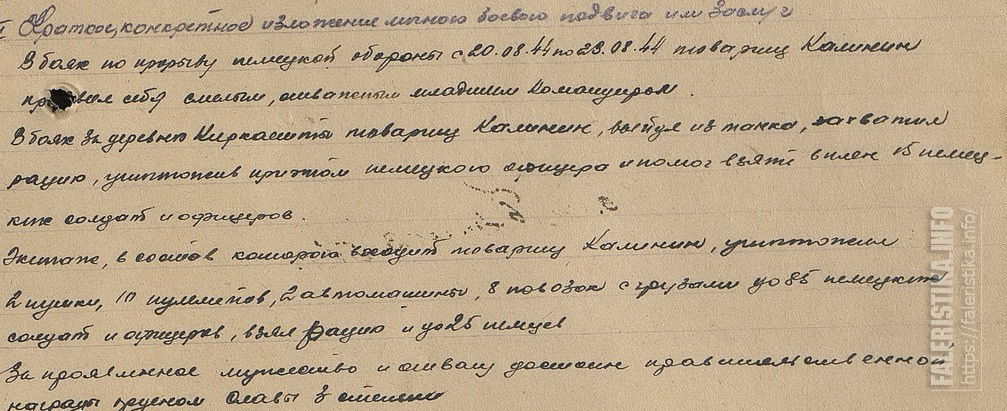 I Краткое, конкретное изложение личного боевого подвига или заслуг
В боях по прорыву немецкой обороны с 20.08.44 по 23.08.44 товарищ Калинин
проявил себя смелым, отважным младшим командиром.
В боях за деревню Киркаешты товарищ Калинин, выйдя из танка, захватил
рацию, уничтожив притом немецкого офицера и помог взять в плен 15 немец-
ких солдат и офицеров.
Экипаж, в состав которого входит товарищ Калинин, уничтожил
2 пушки, 10 пулеметов, 2 автомашины, 8 повозок с грузами до 85 немецких
солдат и офицеров, взял рацию и до 25 немцев
За проявленное мужество и отвагу достоин правительственной
награды орденом Славы 3 степени
FALERISTIKA.INFO
https://faleristika.info/